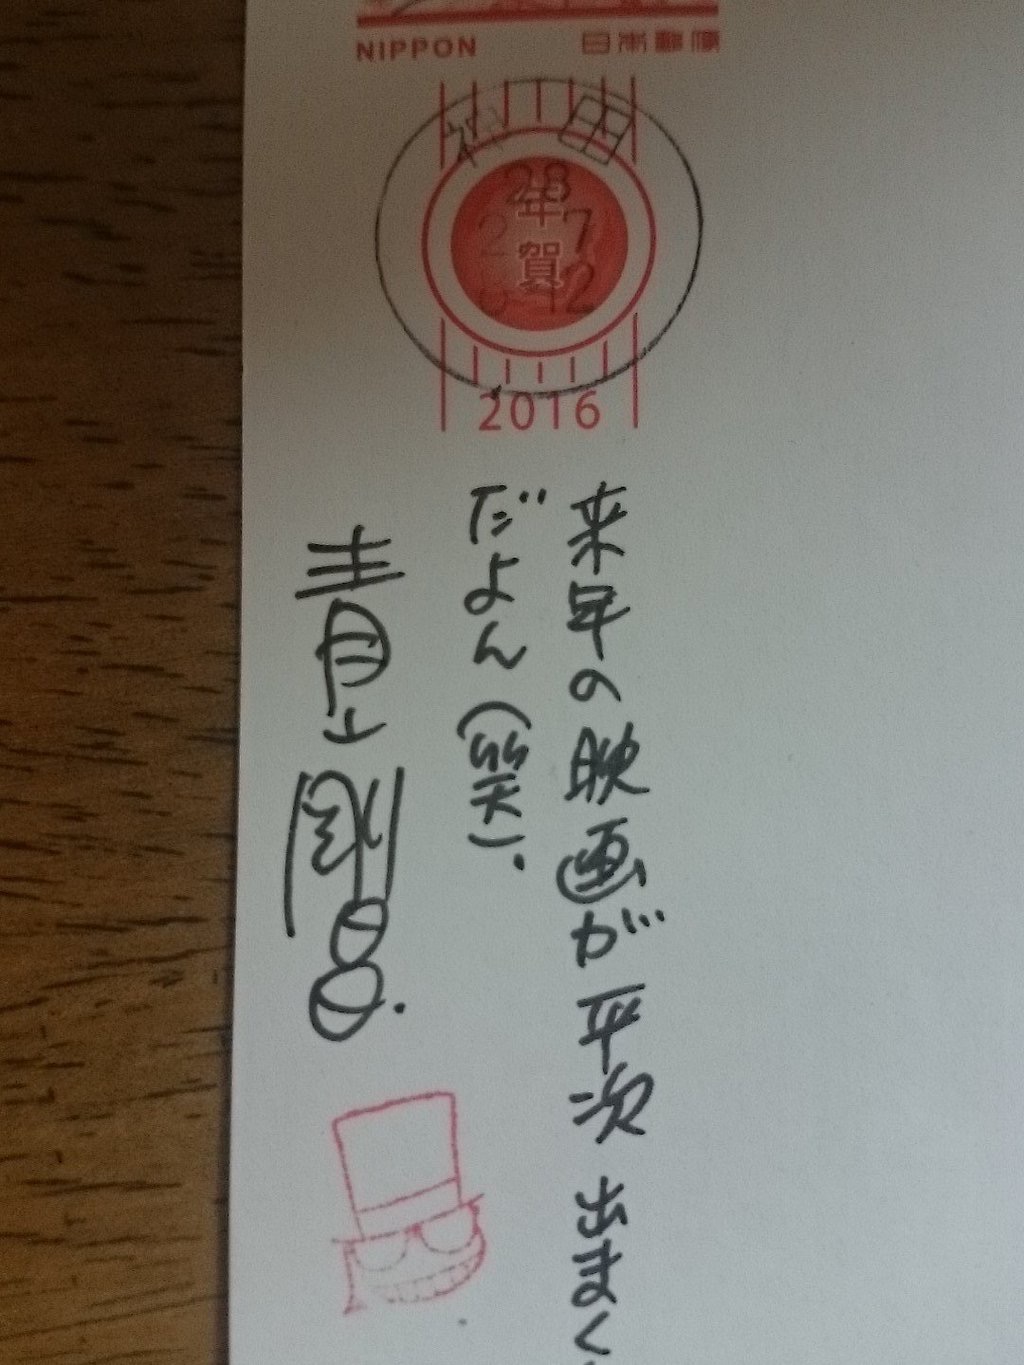 NIPPON 日本郵便
神田
28
年賀
7
12
2016
来年の映画が平次出まく
だよん(笑).
青山剛昌.